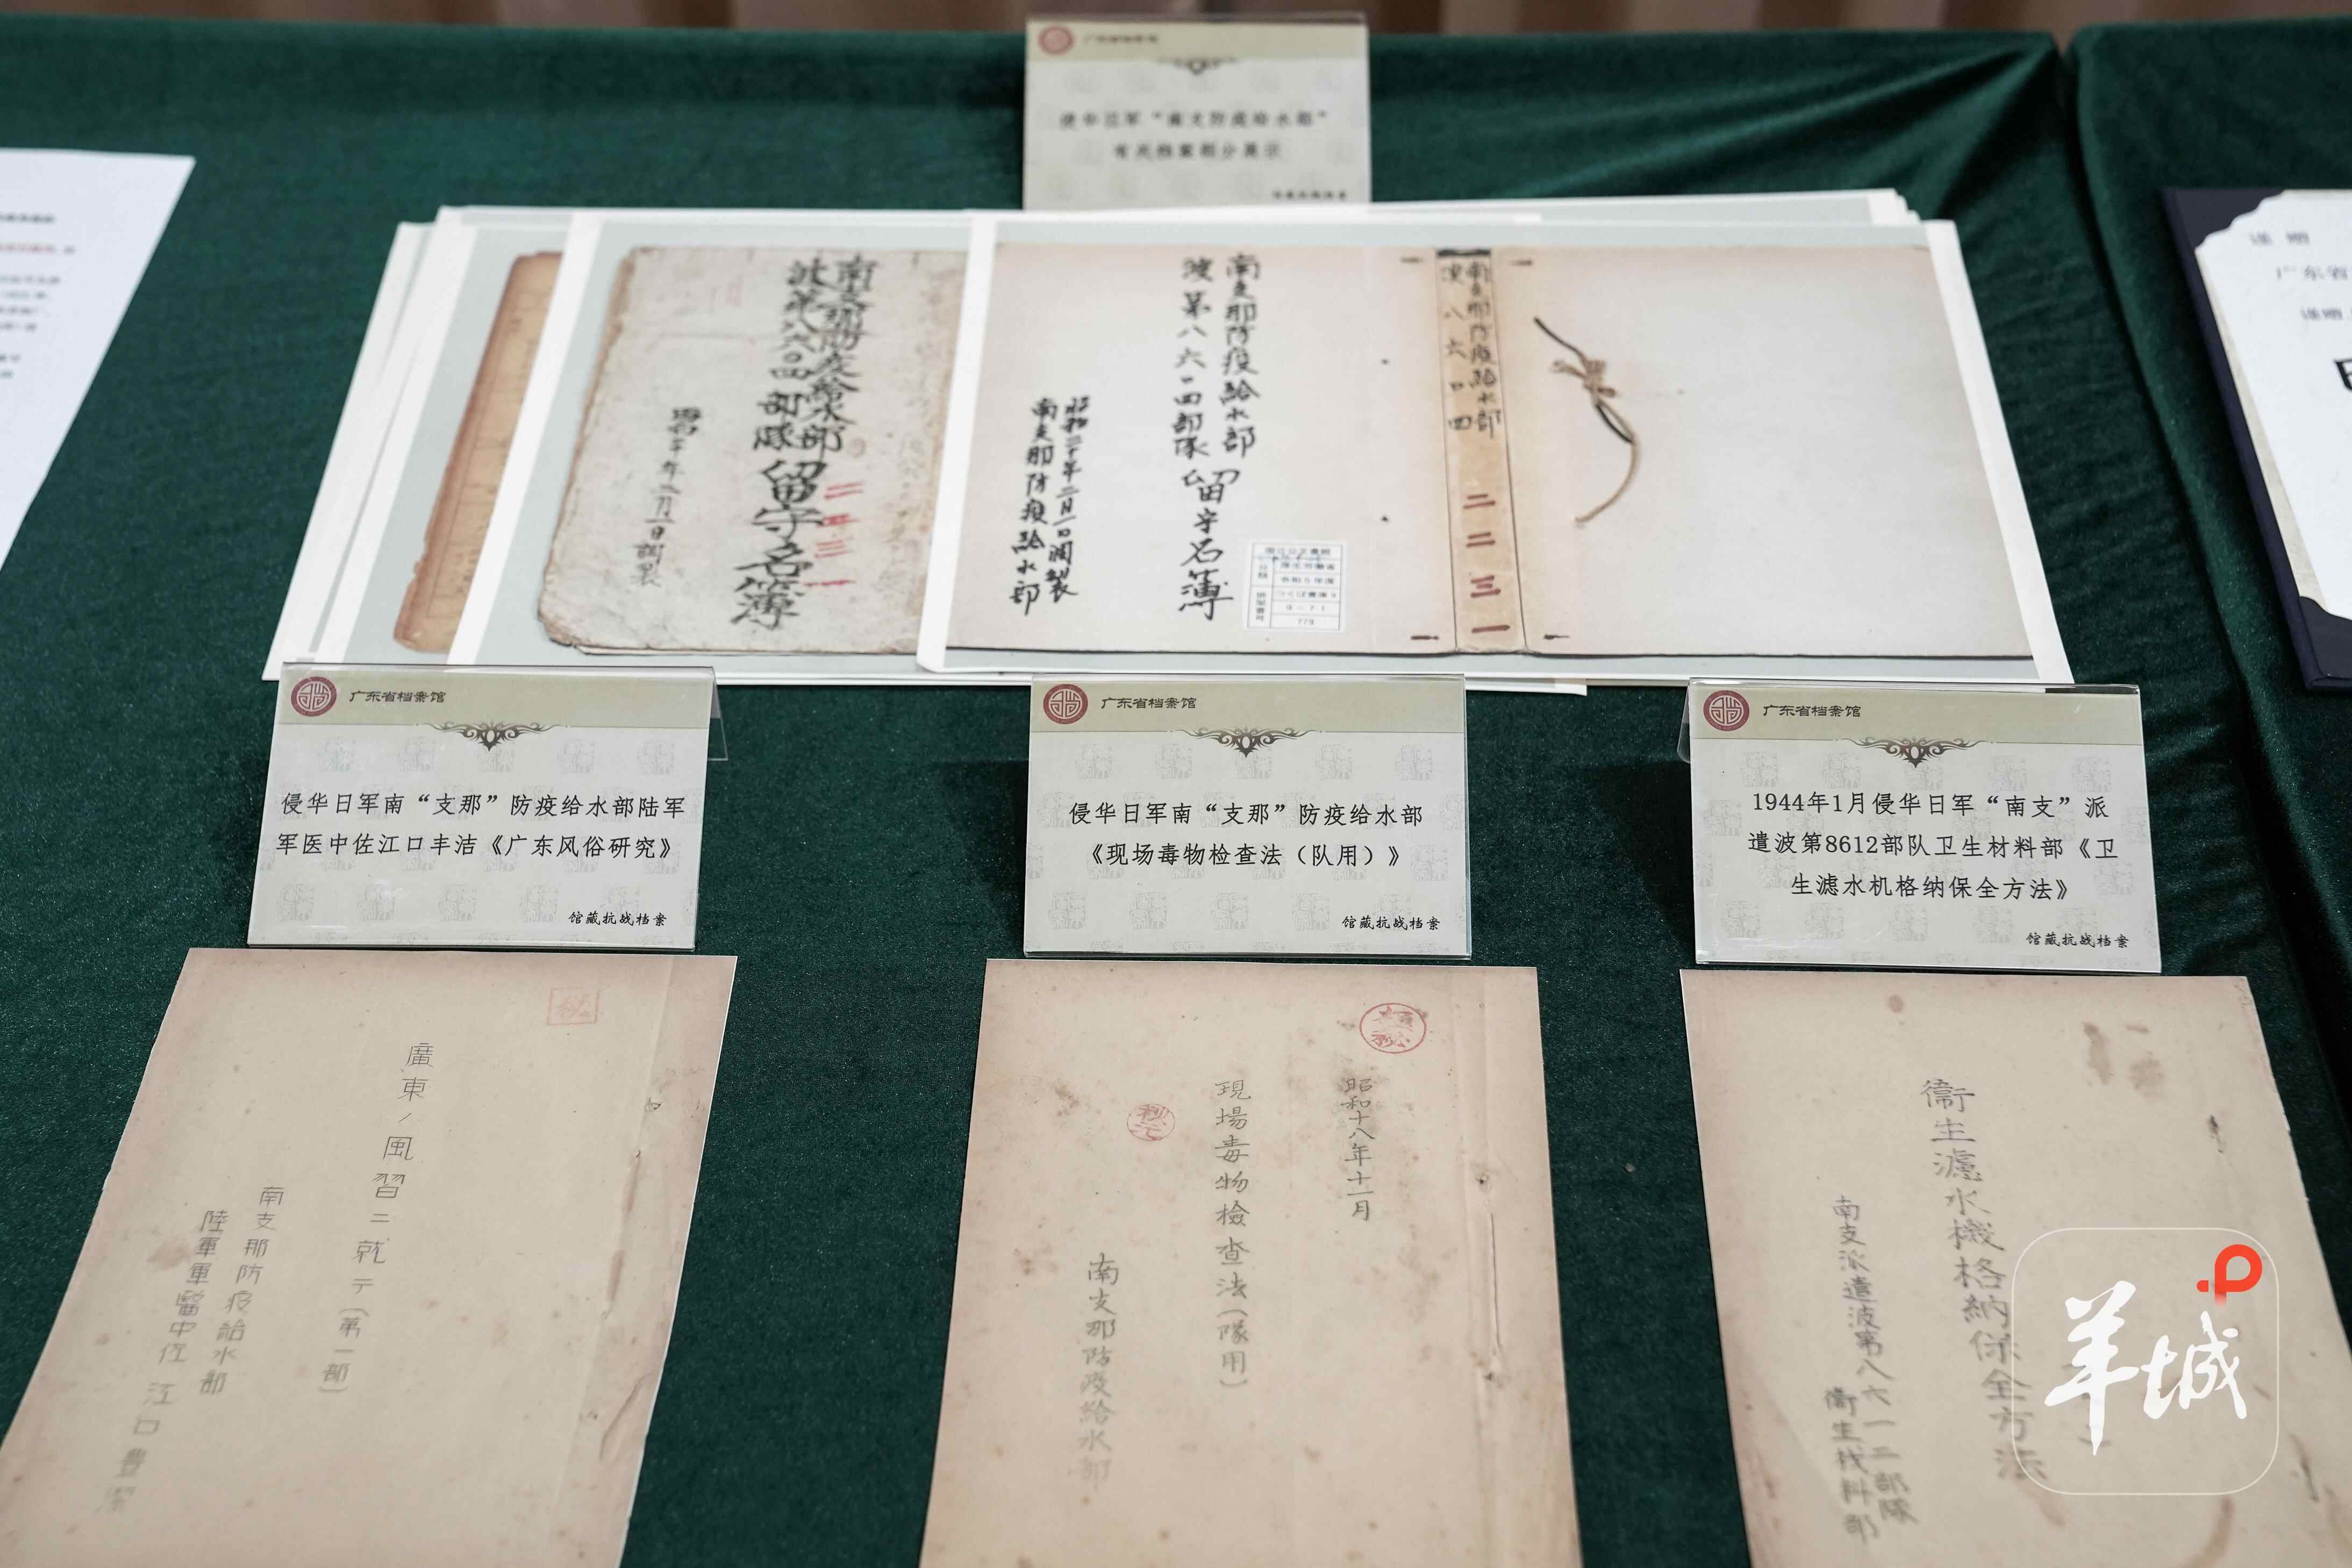 侵华日军“南支防疫给水部”
有关档案部分展示
南支那防疫給水部
波第八六〇四部隊
留守名簿
二
二
三
一
昭和二十年二月一日調製
南支那防疫給水部
波第八六〇四部隊
留守名簿
昭和二十年二月一日調製
南支那防疫給水部
南支那防疫給水部
波八六〇四
二
二
三
一
9-71
779
谨赠
广东省
广东省档案馆
侵华日军南“支那”防疫给水部陆军
军医中佐江口丰洁《广东风俗研究》
馆藏抗战档案
广东省档案馆
侵华日军南“支那”防疫给水部
《现场毒物检查法（队用）》
馆藏抗战档案
广东省档案馆
1944年1月侵华日军“南支”派
遣波第8612部队卫生材料部《卫
生滤水机格纳保全方法》
馆藏抗战档案
秘
廣東ノ風習ニ就テ（第一部）
南支那防疫給水部
陸軍軍醫中佐 江口豊潔
昭和十八年十一月
現場毒物檢查法（隊用）
南支那防疫給水部
衞生濾水機格納保全方法
南支派遣波第八六一二部隊
衞生材料部
羊城